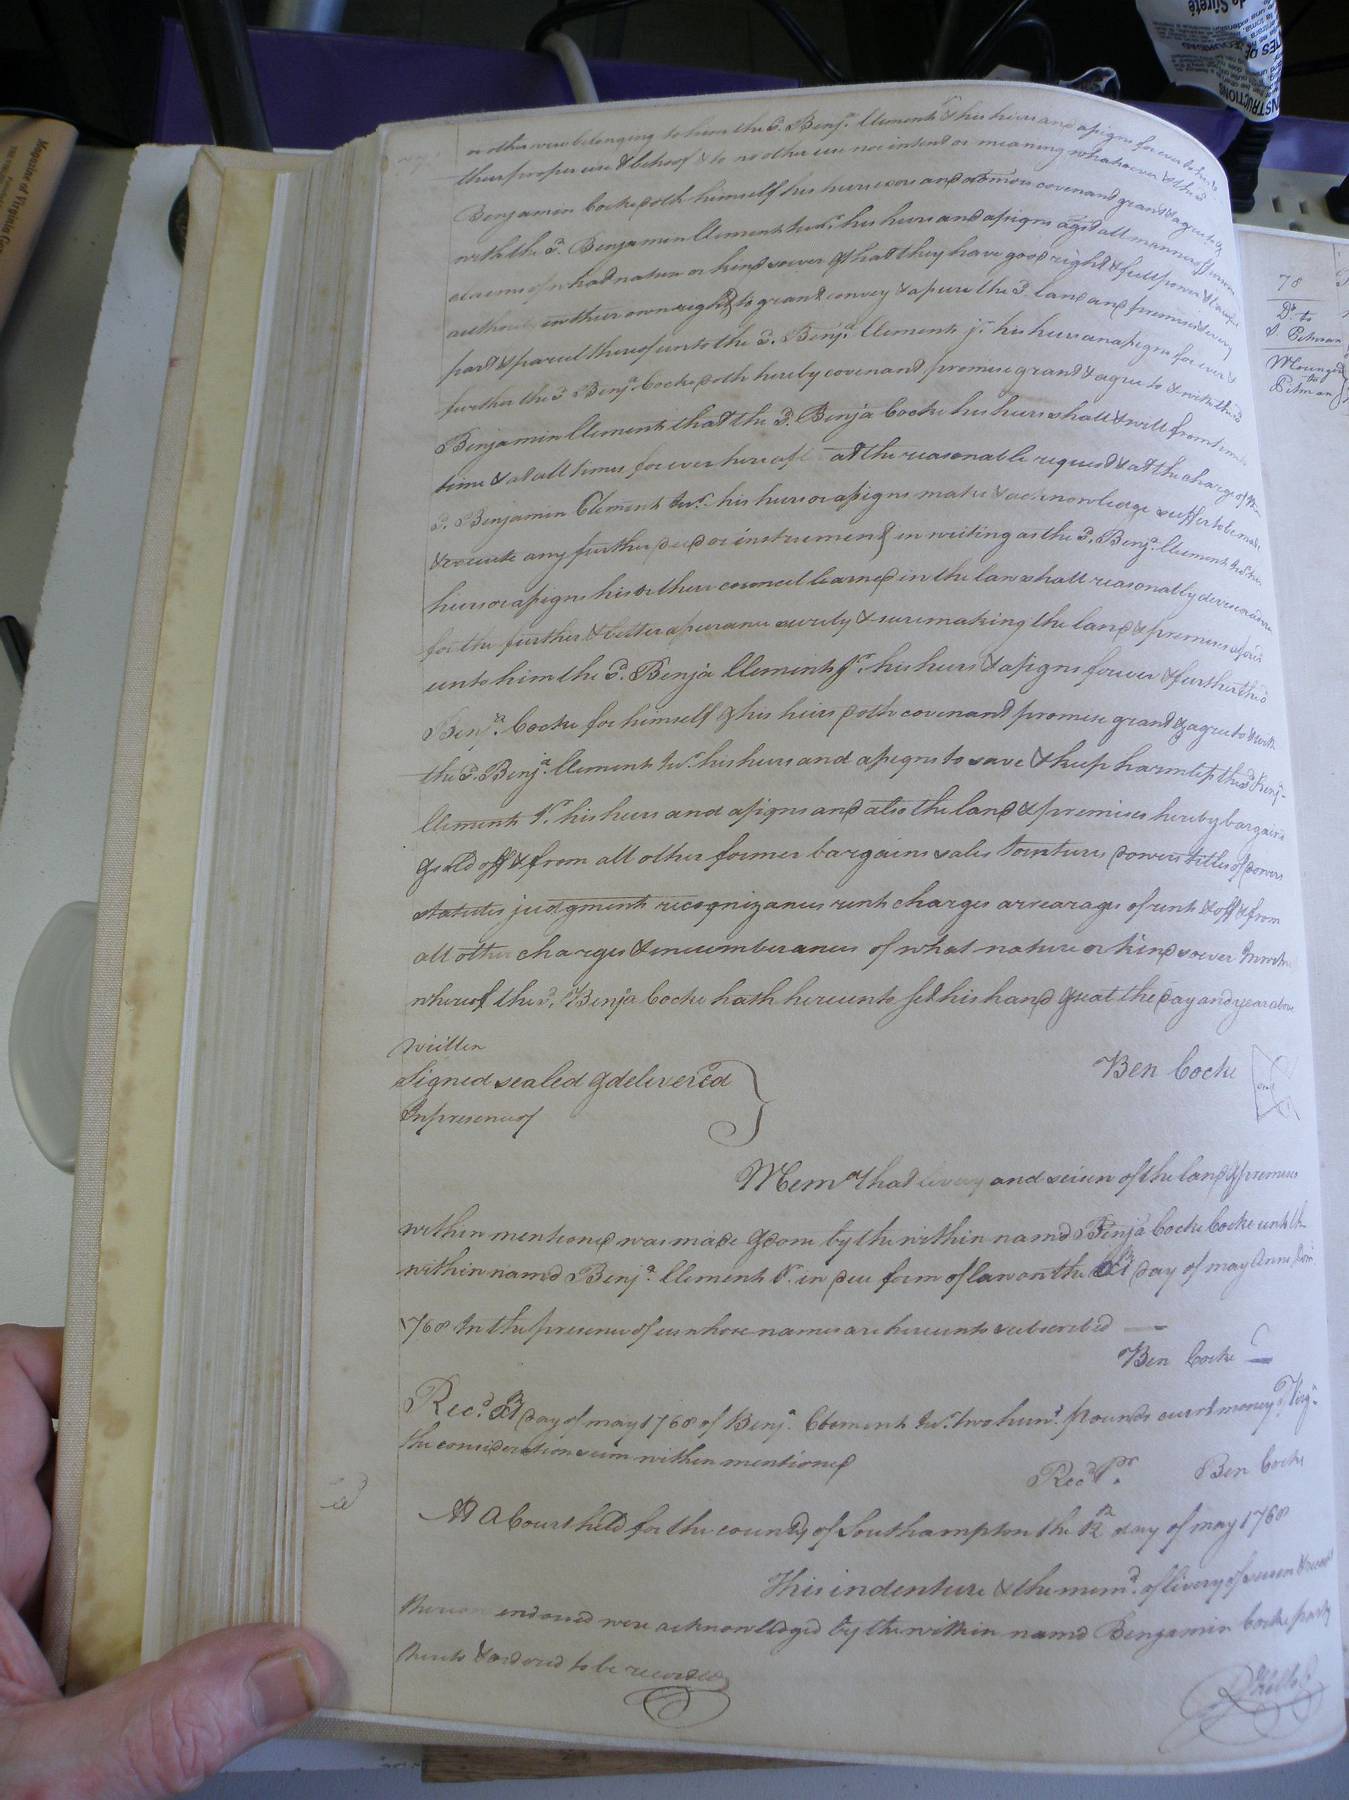 or otherwise belonging to him the sd. Benja. Clements Jr. his heirs and assigns for ever to his &
their proper use & behoof & to no other use nor intent or meaning whatsoever & the sd.
Benjamin Cocke doth himself his heirs exrs and admrs covenant grant & agree to &
with the sd. Benjamin Clements Junr. his heirs and assigns agst all manner of persons
claims of what nature or kind soever & that they have good right & full power & lawful
authority in their own right to grant convey & assure the sd. land and premises & every
part & parcel thereof unto the sd. Benja. Clements jr. his heirs an assigns for ever &
further the sd Benja. Cocke doth hereby covenant promise grant & agree to & with the sd
Benjamin Clements that the sd. Benja Cocke his heirs shall & will from time to
time & at all times for ever hereaft at the reasonable request & at the charge of the
sd. Benjamin Clements Junr. his heirs or assigns make & acknowledge suffer to be made
& execute any further deed or instrument in writing as the sd. Benja. Clements Junr his
heirs or assigns his or their councel learned in the law shall reasonably devise advise
for the further & better assurance surety & sure making the land & premises aforesd
unto him the sd. Benja Clements Jr. his heirs & assigns forever & further the sd
Benja. Cocke for himself & his heirs doth covenant promise grant & agree to & with
the sd. Benja. Clements Junr. his heirs and assigns to save & keep harmless the sd Benja.
Clements Jr. his heirs and assigns and also the land & premises hereby bargain'd
& sold off & from all other former bargains sales Jointures dowers titles of dowers
statutes judgments recognizances rents charges arrearages of rents & off & from
all other charges & incumberances of what nature or kind soever In witness
whereof the sd. Benja Cocke hath hereunto set his hand & seal the day and year above
written
Signed sealed & delivered
In presence of
Ben Cocke seal
Memo that livery and seisen of the land & premises
within mentioned was made & done by the within namd Benja Cocke Cocke unto the
within namd Benja. Clements Jr. in due form of law on the day of may Anno Dom
1768 In the presence of us whose names are hereunto subscribed
Ben Cocke
Recd. day of may 1768 of Benja. Clements Junr. two hund. pounds currt money of Virga.
the consideration sum within mentioned
Recd Pr. Ben Cocke
At A Court held for the county of Southampton the 12 day of may 1768
This indenture & the memd. of livery of seisen & receipt
thereon endorsed were acknowledged by the within namd Benjamin Cocke party
thereto & ordered to be recorded
R Kello
78
Do. to
Pitman
to
Pitman
Magazine of Virginia
INSTRUCTIONS
de Sûreté